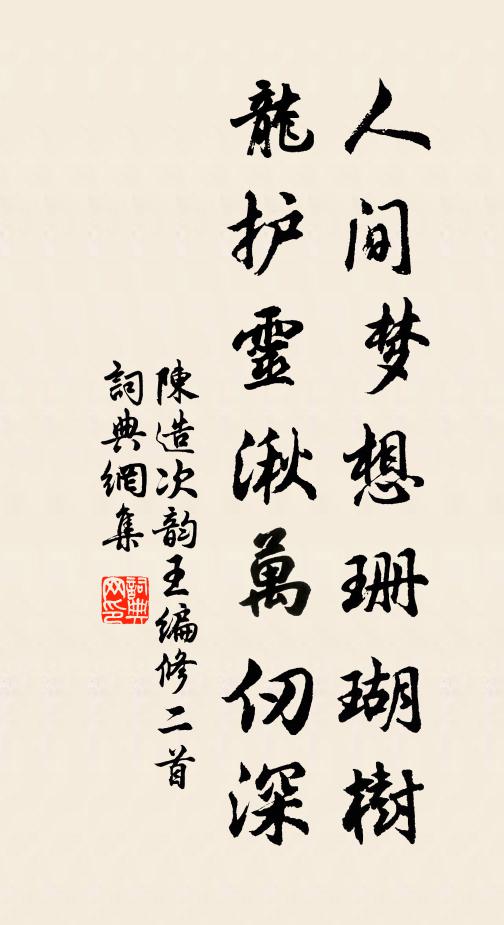 人间梦想珊瑚樹
龍护靈湫萬仞深
陳造次韵王编修二首
詞典網集
詞典
网印